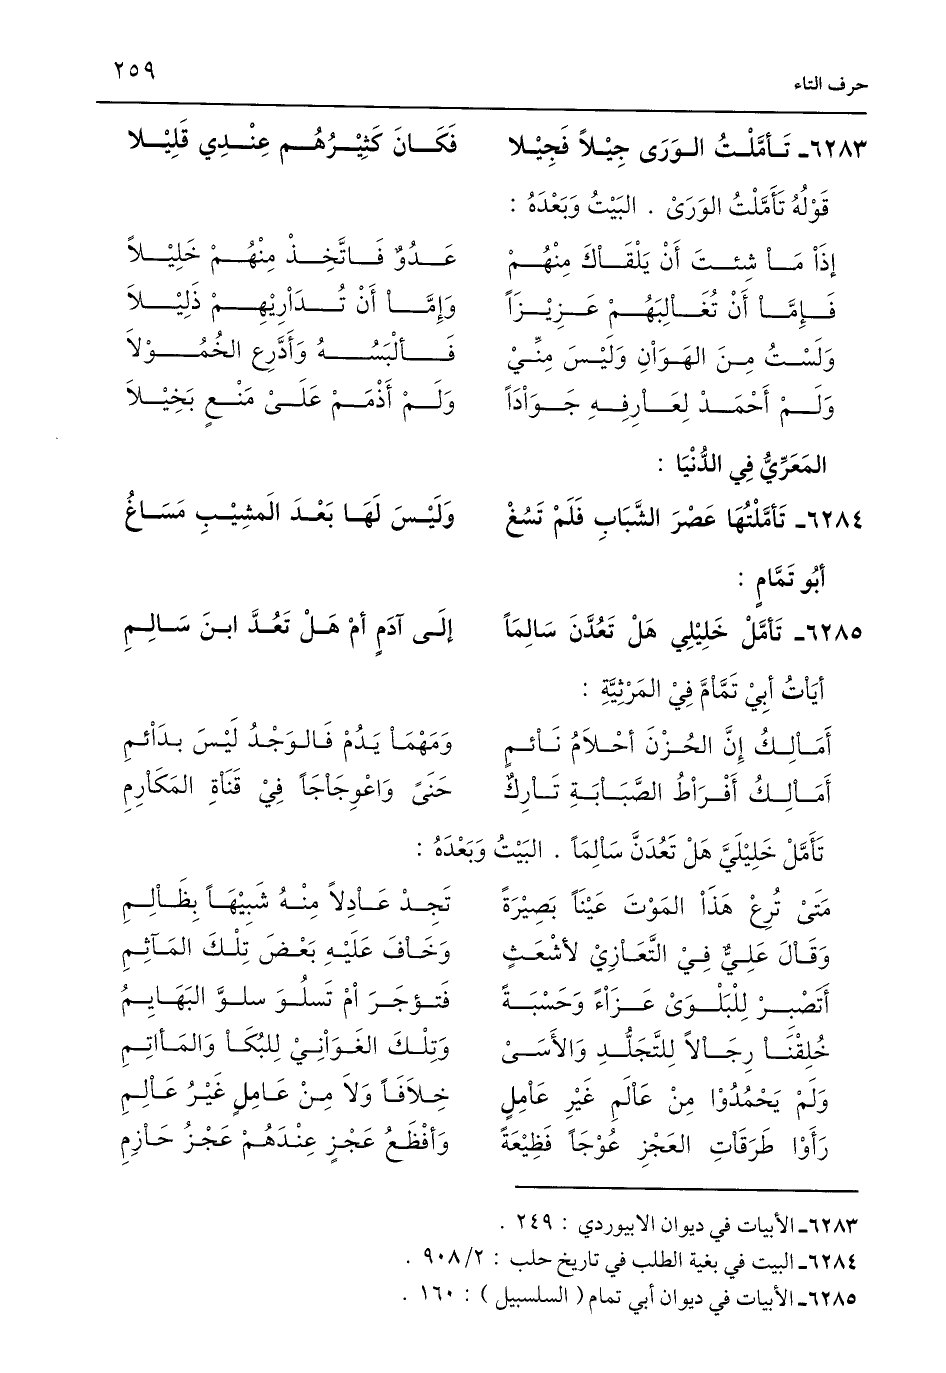 حرف التاء ٢٥٩
٦٢٨٣ـ تَأمَّلْتُ الوَرَى جِيْلاً فَجِيْلا فَكَانَ كَثِيْرُهُم عِنْدِي قَلِيْلا
قَوْلُهُ تَأَمَّلتُ الوَرَىْ . البَيْتُ وَبَعْدَهُ :
إِذَاْ مَاْ شِئتَ أَنْ يَلْقَاْكَ مِنْهُمْ عَدُوٌ فَاتَّخِذْ مِنْهُمْ خَلِيْلاً
فَإِمَّاْ أَنْ تُغَاْلِبَهُمْ عَزِيْزَاً وَإِمَّاْ أَنْ تُدَاْرِيْهِمْ ذَلِيْلاَ
وَلَسْتُ مِنَ الهَوَاْنِ وَلَيْسَ مِنِّيْ فَأَلْبَسُهُ وَأَدَّرِع الخُمُوْلاَ
وَلَمْ أَحْمَدْ لِعَاْرِفِهِ جَوَاْدَاً وَلَمْ أَذْمَمْ عَلَىْ مَنْعٍ بَخِيْلاَ
المَعَرِّيُّ فِي الدُّنْيَا :
٦٢٨٤ـ تَأمَّلْتُهَا عَصْرَ الشَّبَابِ فَلَمْ تَسُغْ وَلَيْسَ لَهَا بَعْدَ المَشِيْبِ مَسَاغُ
أبُو تَمَّامٍ :
٦٢٨٥ـ تَأمَّلْ خَلِيْلِي هَلْ تَعُدَّنَ سَالِمَاً إلَى آدَمٍ أمْ هَلْ تَعُدَّ ابنَ سَالِمِ
أَيَاتُ أَبِيْ تَمَّامَّ فِيْ المَرْثِيَّةِ :
أَمَاْلِكُ إِنَّ الحُزْنَ أَحْلاَمُ نَاْئِمِ وَمَهْمَاْ يَدُمْ فَالوَجْدُ لَيْسَ بِدَاْئِمِ
أَمَاْلِكُ أَفْرَاْطُ الصَّبَاْبَةِ تَاْرِكٌ حَنَىً وَاعْوِجَاْجَاً فِيْ قَنَاْةِ المَكَاْرِمِ
تَأَمَّلْ خَلِيْلَيَّ هَلْ تَعُدَنَّ سَاْلِمَاً . البَيْتُ وَبَعْدَهُ :
مَتَىْ تُرِعْ هَذَاْ المَوْتَ عَيْنَاً بَصِيْرَةً تَجِدْ عَاْدِلاً مِنْهُ شَبِيْهَاً بِظَاْلِمِ
وَقَاْلَ عَلِيٌّ فِيْ التَّعَاْزِيْ لأَشْعَثٍ وَخَاْفَ عَلَيْهِ بَعْضَ تِلْكَ المَآثِمِ
أَتَصْبِرْ لِلْبَلْوَىْ عَزَاْءً وَحَسْبَةً فَتُؤجَرَ أَمْ تَسْلُوَ سلوَّ البَهَاْيِمُ
خُلِقْنَاْ رِجَاْلاً لِلتَّجَلُّدِ وَالأَسَىْ وَتِلْكَ الغَوَاْنِيْ لِلبُكَاْ وَالمَآتِمِ
وَلَمْ يَحْمُدُوْا مِنْ عَاْلَمٍ غَيْرِ عَاْمِلٍ خِلاَفَاً وَلاَ مِنْ عَاْمِلٍ غَيْرُ عَاْلِمِ
رَأَوْا طَرَقَاْتِ العَجْزِ عُوْجَاً فَظِيْعَةً وَأَفْظَعُ عَجْزٍ عِنْدَهُمْ عَجْزُ حَاْزِمِ
٦٢٨٣ـ الأبيات في ديوان الابيوردي : ٢٤٩ .
٦٢٨٤ـ البيت في بغية الطلب في تاريخ حلب : ٩٠٨/٢ .
٦٢٨٥ـ الأبيات في ديوان أبي تمام ( السلسبيل ) : ١٦٠ .